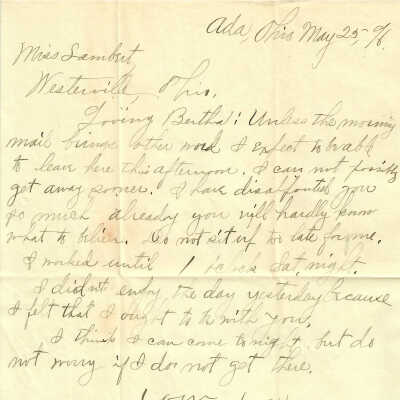 Ada, Ohio May 25, '96.
Miss Lambert,
Westerville, Ohio.
Loving Bertha: Unless the morning
mail brings other word I expect to be able
to leave here this afternoon. I can not possibly
get away sooner. I have disappointed you
so much already you will hardly know
what to believe. Do not sit up too late for me.
I worked until 1 o'clock Sat. night.
I didn't enjoy the day yesterday because
I felt that I ought to be with you.
I think I can come to-night, but do
not worry if I do not get there.